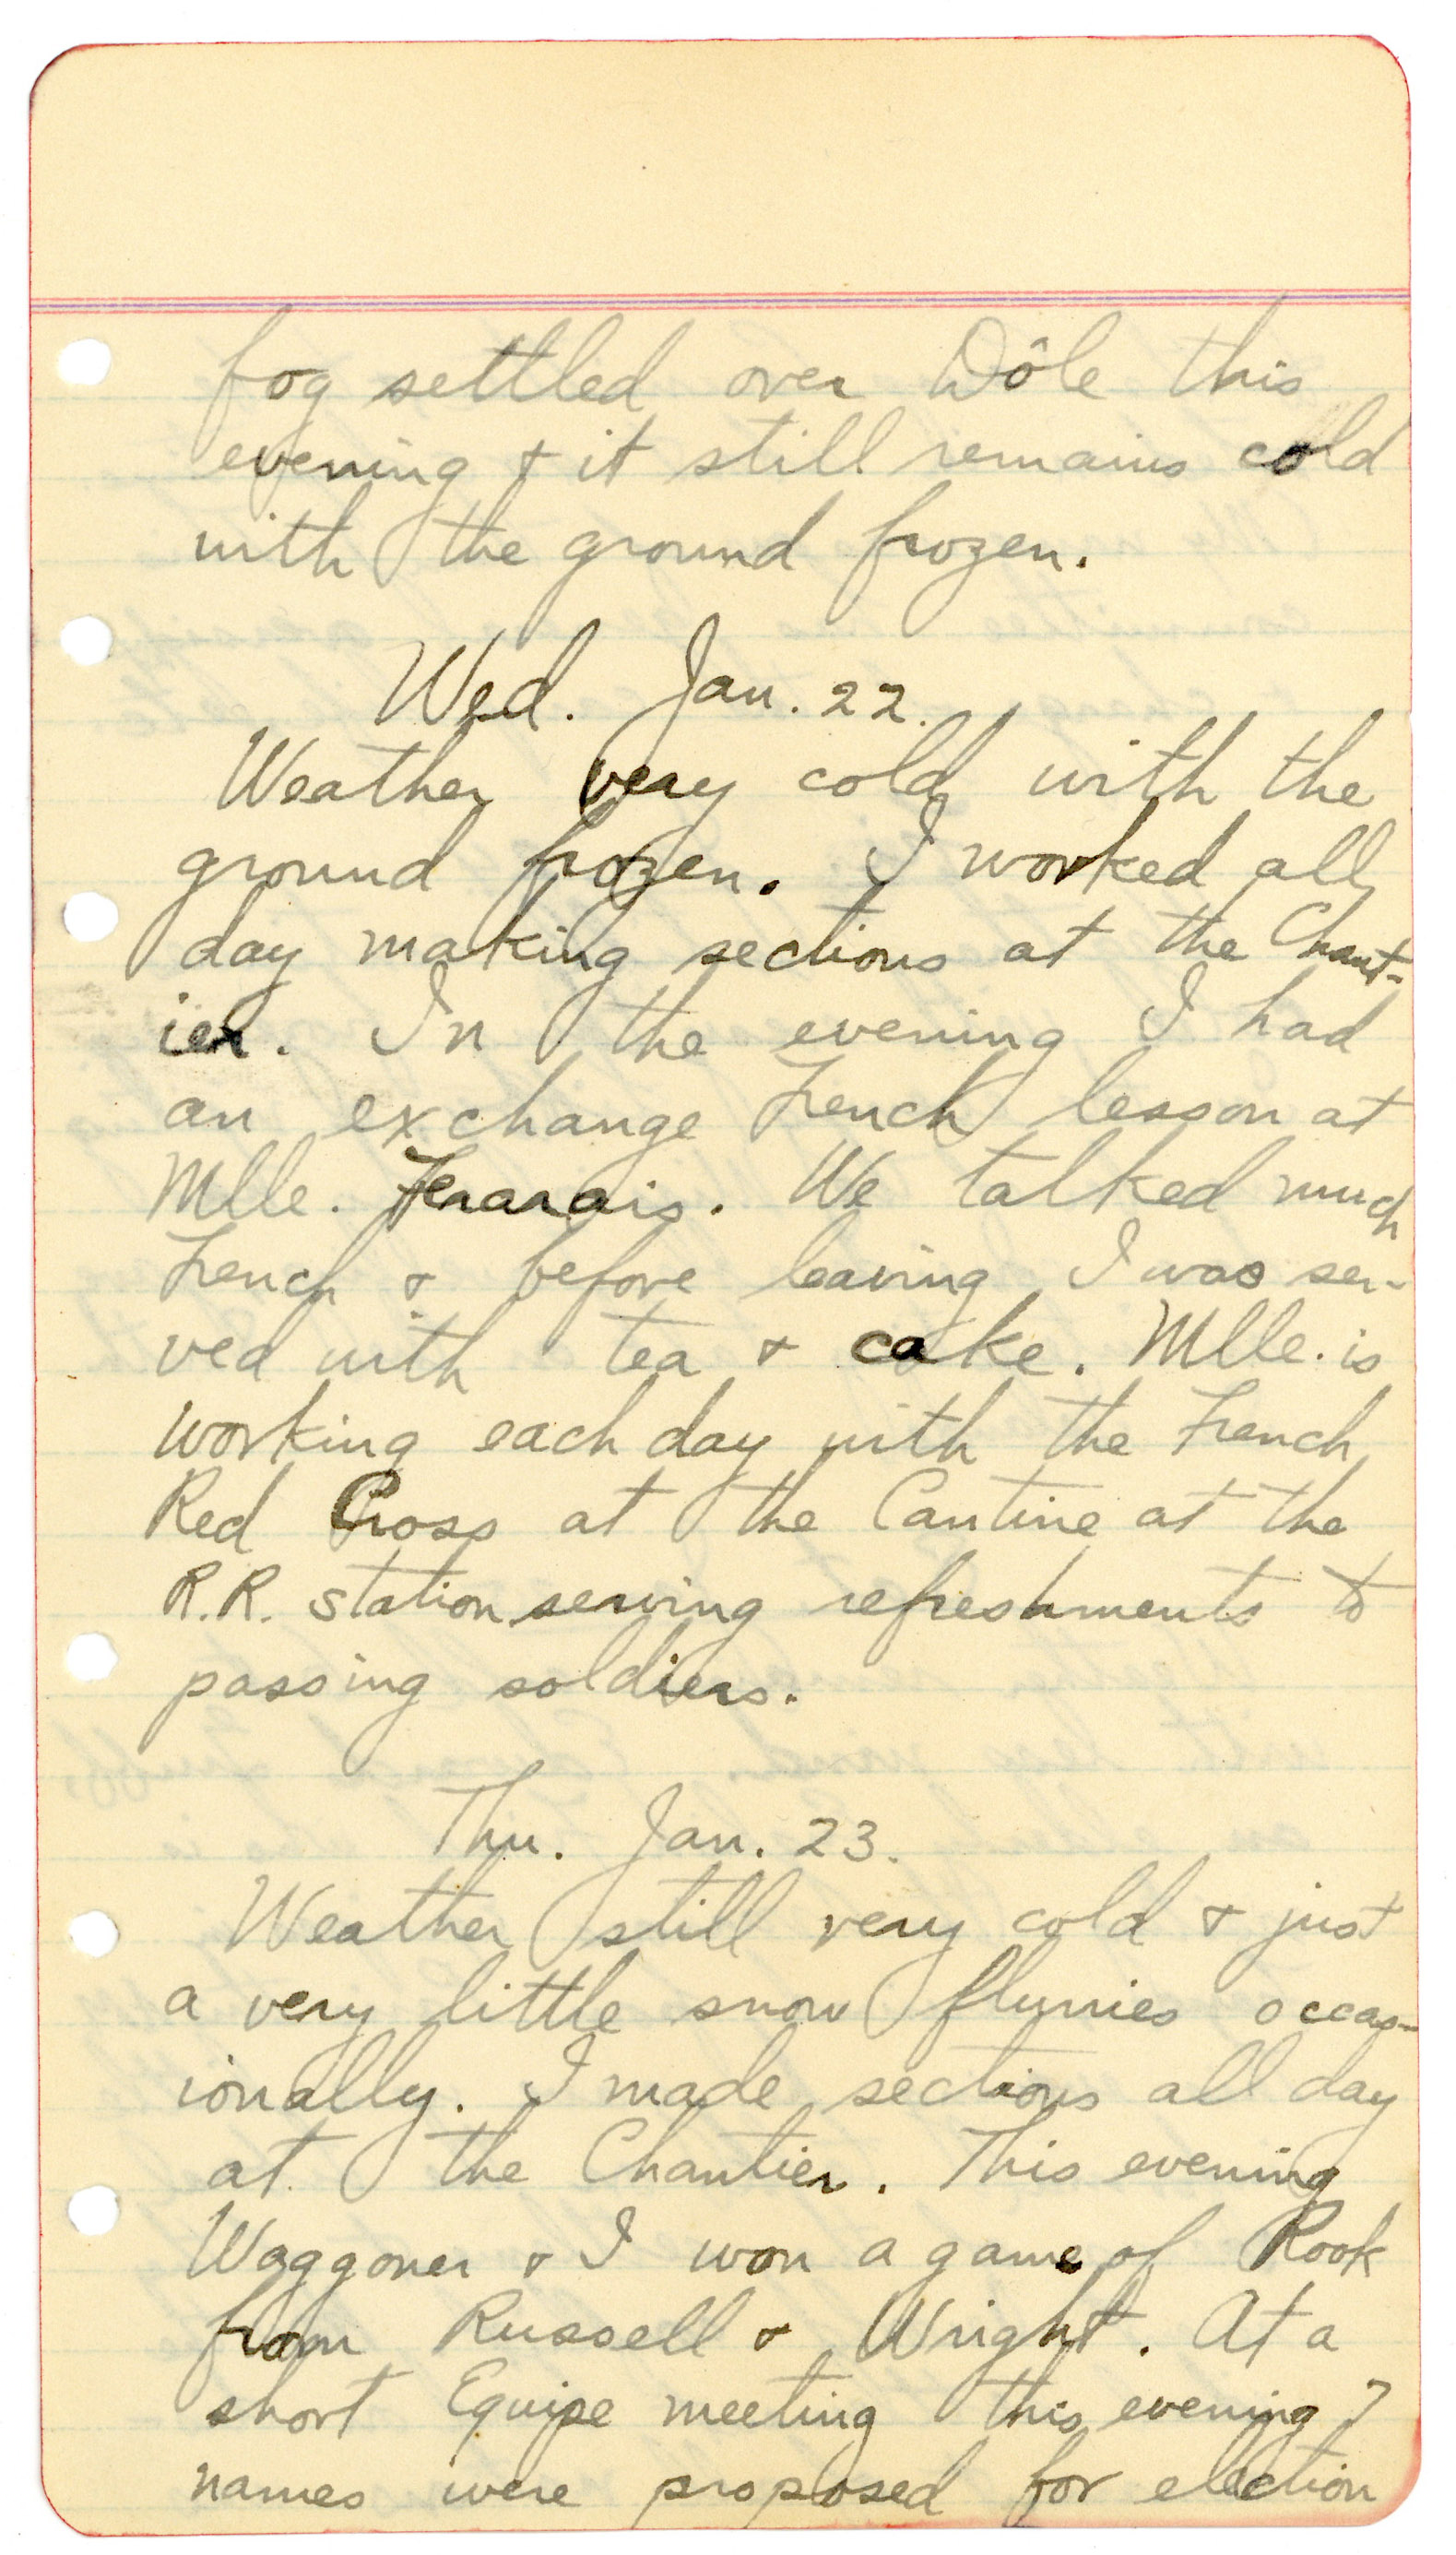 fog settled over Dôle this
evening & it still remains cold
with the ground frozen.
Wed. Jan. 22.
Weather very cold with the
ground frozen. I worked all
day making sections at the Chant-
ier. In the evening I had
an exchange French lesson at
Mlle. Ferarais. We talked much
French & before leaving I was ser-
ved with tea & cake. Mlle. is
working each day with the French
Red Cross at the Cantine at the
R.R. station serving refreshments to
passing soldiers.
Thu. Jan. 23.
Weather still very cold & just
a very little snow flurries occas-
ionally. I made sections all day
at the Chantier. This evening
Waggoner & I won a game of Rook
from Russell & Wright. At a
short Equipe meeting this evening 7
names were proposed for election